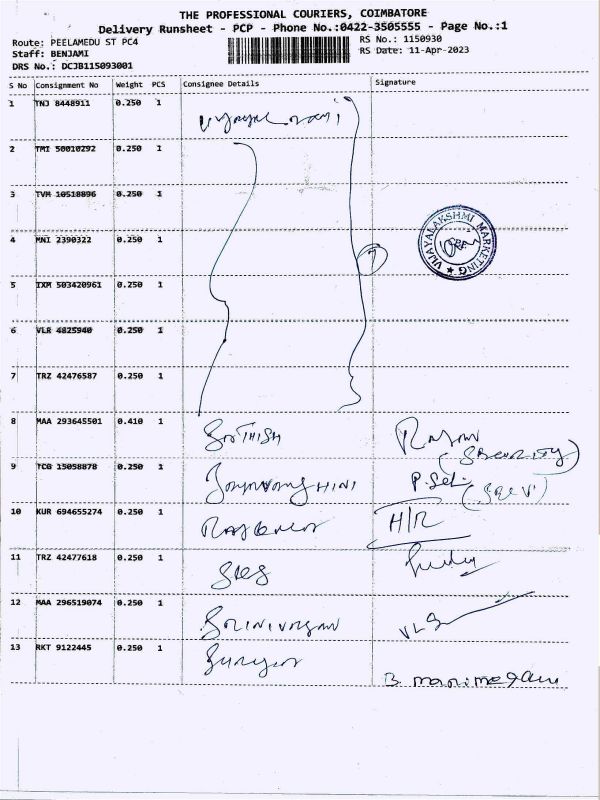 THE PROFESSIONAL COURIERS, COIMBATORE
Delivery Runsheet - PCP - Phone No.:0422-3505555 - Page No.:1
Route: PEELAMEDU ST PC4
Staff: BENJAMI
DRS No.: DCJB115093001
RS No.: 1150930
RS Date: 11-Apr-2023
S No Consignment No Weight PCS Consignee Details Signature
1 TNJ 8448911 0.250 1
2 TMI 50010292 0.250 1
3 TVM 10518896 0.250 1
4 MNI 2390322 0.250 1
7
VIJAYALAKSHMI MARKETING
5 IXM 503420961 0.250 1
6 VLR 4825940 0.250 1
7 TRZ 42476587 0.250 1
8 MAA 293645501 0.410 1 SATHISH
(SECURITY)
9 TCG 15058878 0.250 1
10 KUR 694655274 0.250 1 H/R
11 TRZ 42477618 0.250 1
12 MAA 296519074 0.250 1 SRINIVASAN
13 RKT 9122445 0.250 1
B. manimegalai